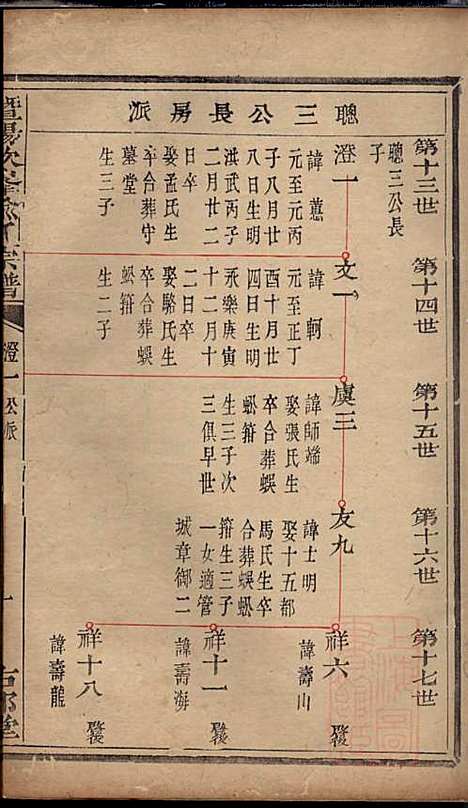 聰三公長房派
第十三世
第十四世
第十五世
第十六世
第十七世
聰三公長
子
澄一
諱蕙
元至元丙
子八月廿
八日生明
洪武丙子
二月廿二
日卒
娶孟氏生
卒合葬守
墓堂
生三子
文一
諱軻
元至正丁
酉十月廿
四日生明
永樂庚寅
十二月十
二日卒
娶駱氏生
卒合葬蜈
蚣簈
生二子
虞三
諱師端
娶張氏生
卒合葬蜈
蚣簈
生三子次
三俱早世
友九
諱士明
娶十五都
馬氏生卒
合葬蜈蚣
簈生三子
一女適管
城章御二
祥六
諱壽山
發
祥十一
諱壽海
發
祥十八
諱壽龍
發
宗譜
澄一公派
一